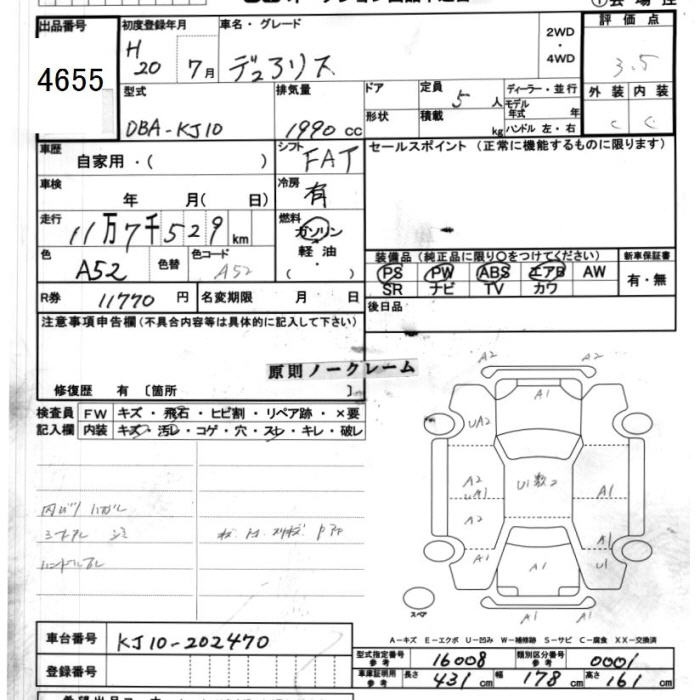 出品番号 初度登録年月 車名・グレード
4655 H20 7月 デュアリス 2WD・4WD
評価点 3.5
外装 内装
C C
型式 排気量 ドア 定員 ディーラー・並行
DBA-KJ10 1990cc 5人 モデル年式 年
形状 積載 kg ハンドル 左・右
車歴 自家用・( ) シフト FAT
セールスポイント (正常に機能するものに限ります)
車検 年 月(日) 冷房 有
走行 11万7千529km 燃料 ガソリン 軽油 ・( )
色 A52 色替 色コード A52
装備品(純正品に限り○をつけてください) 新車保証書
PS PW ABS エアB AW
SR ナビ TV カワ 有・無
R券 11770円 名変期限 月 日
後日品
注意事項申告欄(不具合内容等は具体的に記入して下さい)
原則ノークレーム
修復歴 有 〔箇所 〕
検査員記入欄 FW キズ・飛石・ヒビ割・リペア跡・×要
内装 キズ・汚レ・コゲ・穴・スレ・キレ・破レ
A2 A2
A1
UA2
A2
UA1
A2
A1
U1 数2
A1
A1
U1
A1
A1 A1
スペア
A−キズ E−エクボ U−凹み W−補修跡 S−サビ C−腐食 XX−交換済
車台番号 KJ10-202470
登録番号
型式指定番号 参考 16008 類別区分番号 参考 0001
車庫証明用 参考 長さ 431cm 幅 178cm 高さ 161cm